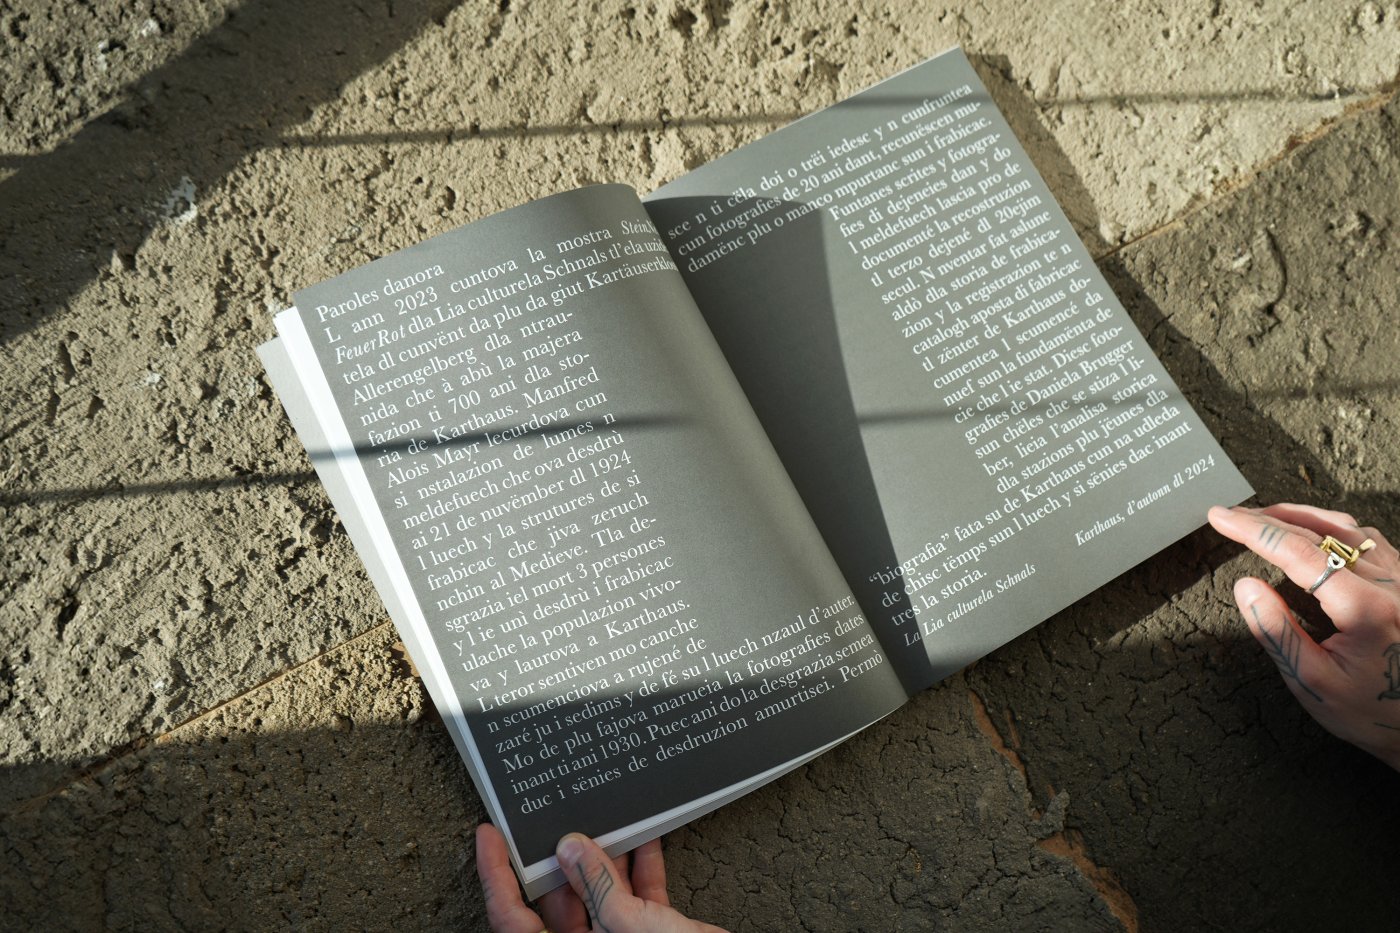 Paroles danora
L ann 2023 cuntova la mostra
FeuerRot dla Lia culturela Schnals tl' ela
tela dl cunvënt da plu da giut Kartäuserklos
Allerengelberg dla ntrau-
nida che à abù la majera
fazion ti 700 ani dla sto-
ria de Karthaus. Manfred
Alois Mayr lecurdova cun
si nstalazion de lumes n
meldefuech che ova desdrù
ai 21 de nuvëmber dl 1924
l luech y la strutures de si
frabicac che jiva zeruch
nchin al Medieve. Tla de-
sgrazia iel mort 3 persones
y l ie unì desdrù i frabicac
ulache la populazion vivo-
va y laurova a Karthaus.
L teror sentiven mo canche
n scumenciova a rujené de
zaré ju i sedims y de fé su l luech nzaul d'auter.
Mo de plu fajova marueia la fotografies dates
inant ti ani 1930. Puec ani do la desgrazia semea
duc i sënies de desdruzion amurtisei. Permò
sce n ti cëla doi o trëi iedesc y n cunfruntea
cun fotografies de 20 ani dant, recunëscen mu-
damënc plu o manco mpurtanc sun i frabicac.
Funtanes scrites y fotogra-
fies di dejeneies dan y do
l meldefuech lascia pro de
documenté la recostruzion
tl terzo dejené dl 20ejim
secul. N nventar fat aslune
aldò dla storia de frabica-
zion y la registrazion te n
catalogh aposta di fabricac
tl zënter de Karthaus do-
cumentea l scumencë da
nuef sun la fundamënta de
cie che l ie stat. Diesc foto-
grafies de Daniela Brugger
sun chëles che se stiza l li-
ber, lieia l'analisa storica
dla stazions plu jëunes dla
“biografia” fata su de Karthaus cun na udleda
de chisc tëmps sun l luech y si sënies dac inant
tres la storia.
La Lia culturela Schnals
Karthaus, d'autonn dl 2024